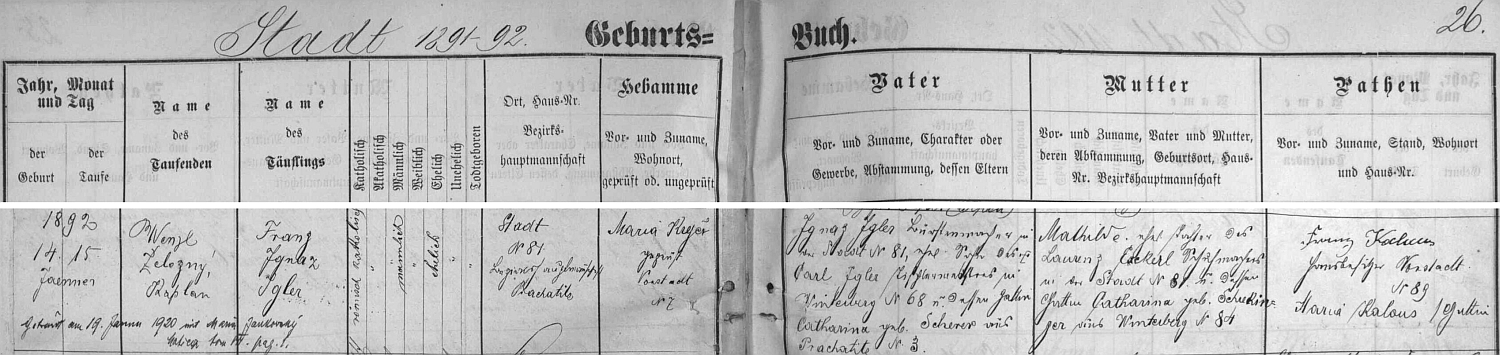 Stadt 1891-92. Geburts=Buch. 26.
Jahr, Monat und Tag
der Geburt
der Taufe
Name des Taufenden
Name des Täuflings
Katholisch
Akatholisch
Männlich
Weiblich
Ehelich
Unehelich
Todtgeboren
Ort, Haus-Nr.
Bezirks-
hauptmannschaft
Hebamme
Vor- und Zuname,
Wohnort,
geprüft od. ungeprüft
Vater
Vor- und Zuname, Charakter oder
Gewerbe, Abstammung, dessen Eltern
Mutter
Vor- und Zuname, Vater und Mutter,
deren Abstammung, Geburtsort, Haus-
Nr. Bezirkshauptmannschaft
Pathen
Vor- und Zuname, Stand, Wohnort
und Haus-Nr.
1892
14. 15
Jaenner
Wenzl
Železný,
Kaplan
Franz
Ignaz
Igler
männlich
ehelich
Stadt
N 81
Prachatitz
Maria Krejer
geprüft
Vorstadt
N 7
Ignaz Igler Bürstenmacher in
der Stadt N 81, ehel. Sohn des
Carl Igler Tischlermeisters in
Winterberg N 68 u. dessen Gattin
Catharina geb. Scherer aus
Prachatitz N 3.
Mathilde, ehel. Tochter des
Laurenz Eckerl Schuhmachers
in der Stadt N 81 u. dessen
Gattin Catharina geb.
aus Winterberg N 84
Franz Kalous
Hausbesitzer Vorstadt
N 89
Maria Kalous / Gattin
Getraut am 19. Jänner 1920 mit
pag. 1.